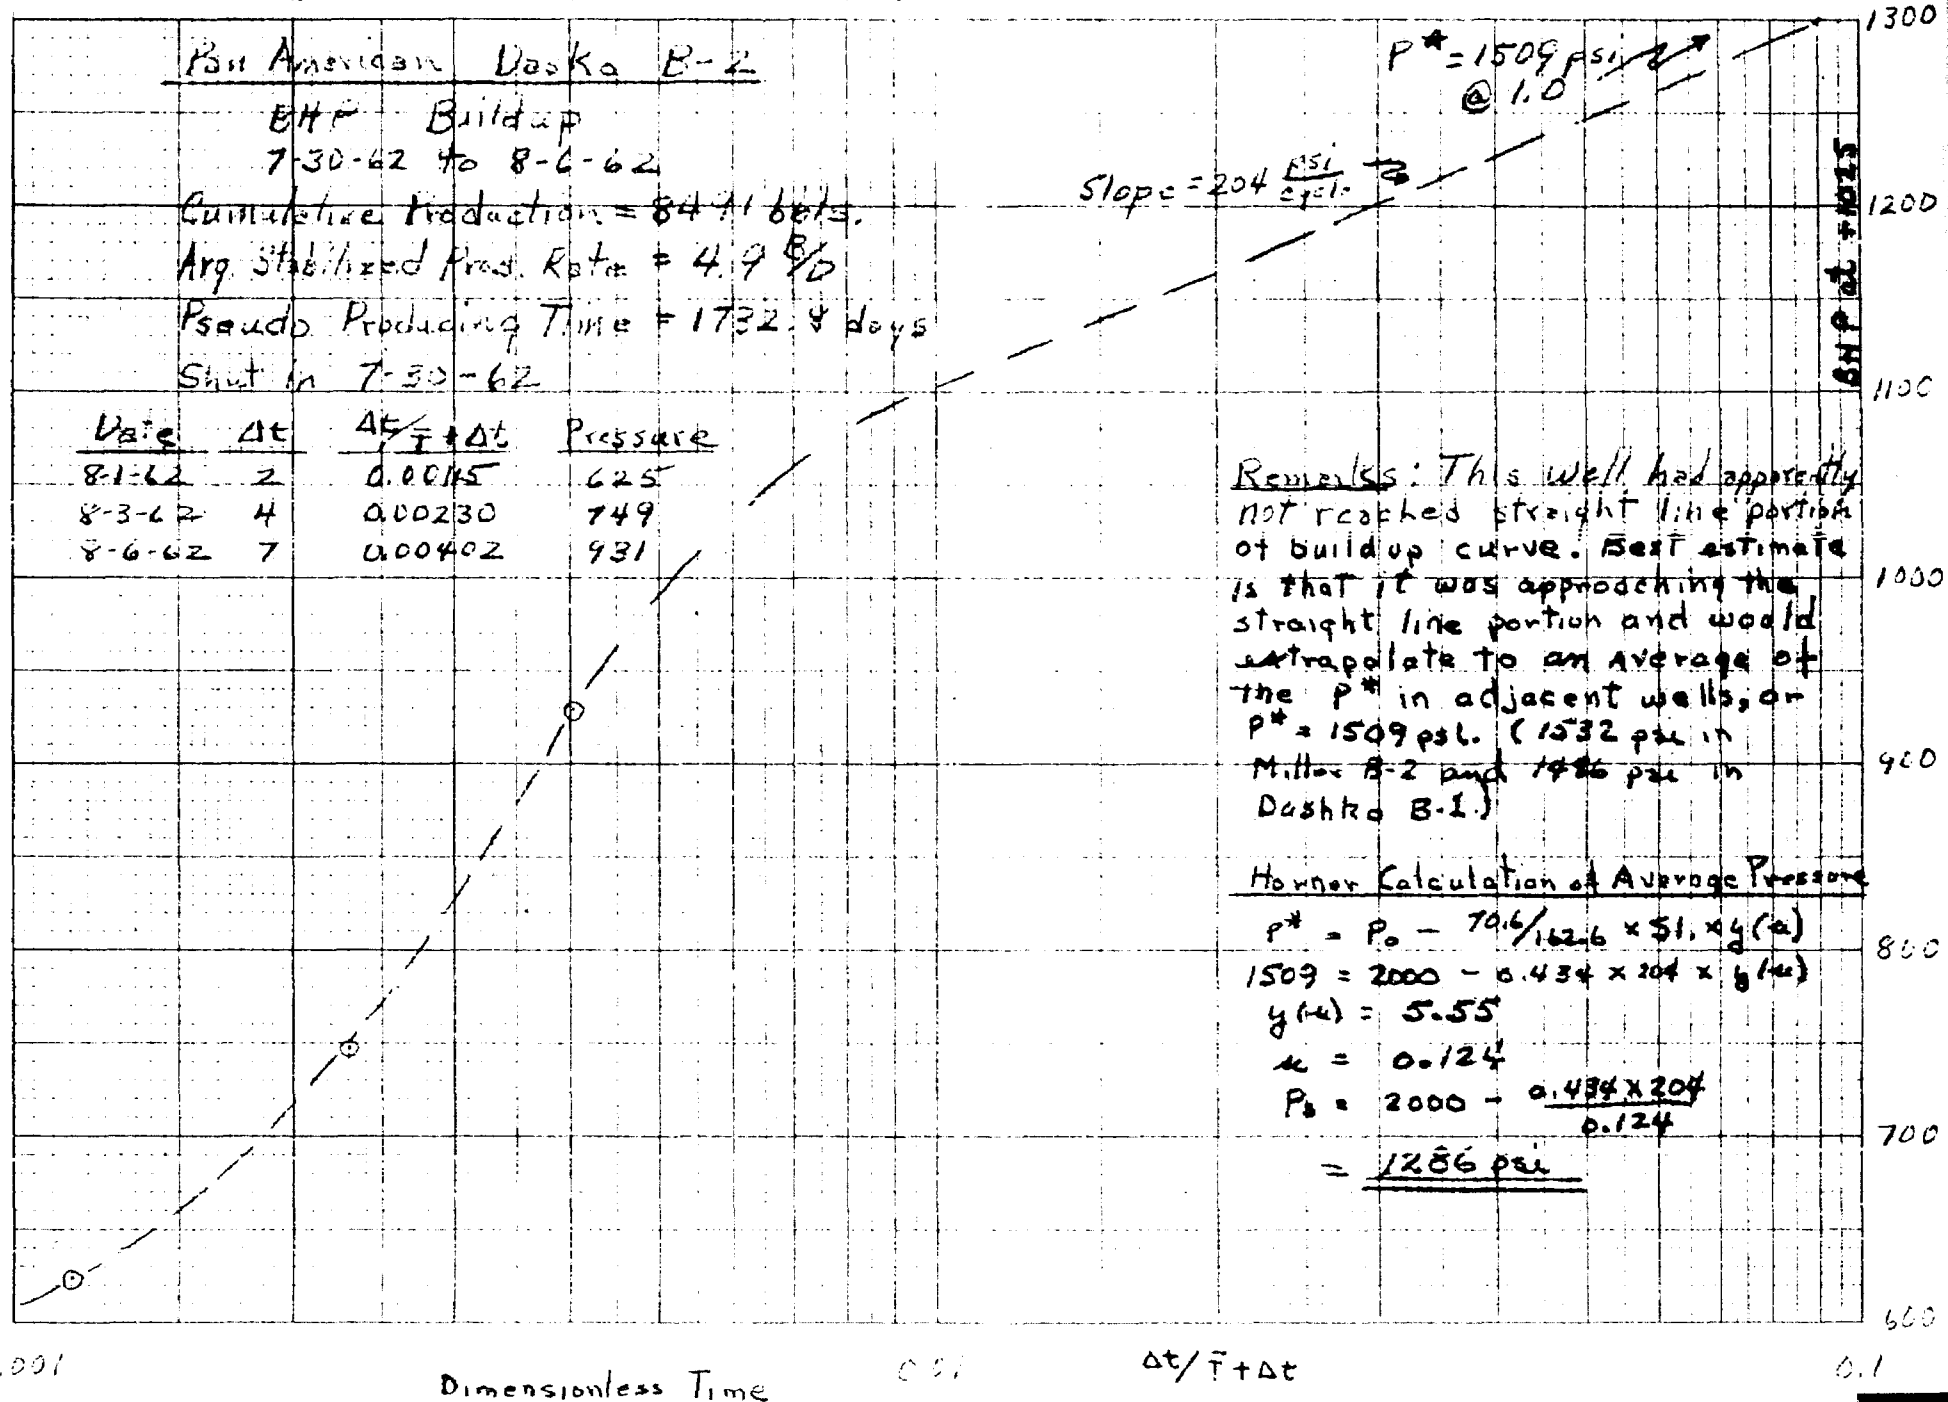 Pan American Dashko B-2
BHP Buildup
7-30-62 to 8-6-62
Cumulative Production = 8491 bbls.
Avg. Stabilized Prod. Rate = 4.9 B/D
Pseudo Producing Time = 1732.4 days
Shut in 7-30-62
Date Δt Δt/T̄+Δt Pressure
8-1-62 2 0.00115 625
8-3-62 4 0.00230 749
8-6-62 7 0.00402 931
P* = 1509 psi
@ 1.0
Slope = 204 psi/cycle
BHP at +1025
1300
1200
1100
1000
900
800
700
600
Remarks: This well had apparently
not reached straight line portion
of buildup curve. Best estimate
is that it was approaching the
straight line portion and would
extrapolate to an average of
the P* in adjacent wells, or
P* = 1509 psi. (1532 psi in
Miller B-2 and 1486 psi in
Dashko B-1.)
Horner Calculation of Average Pressure
P* = Po - 70.6/162.6 x Sl. x y(u)
1509 = 2000 - 0.434 x 204 x y(u)
y(u) = 5.55
u = 0.124
Ps = 2000 - 0.434 x 204 / 0.124
= 1286 psi
.001 0.01 Δt/T̄+Δt 0.1
Dimensionless Time